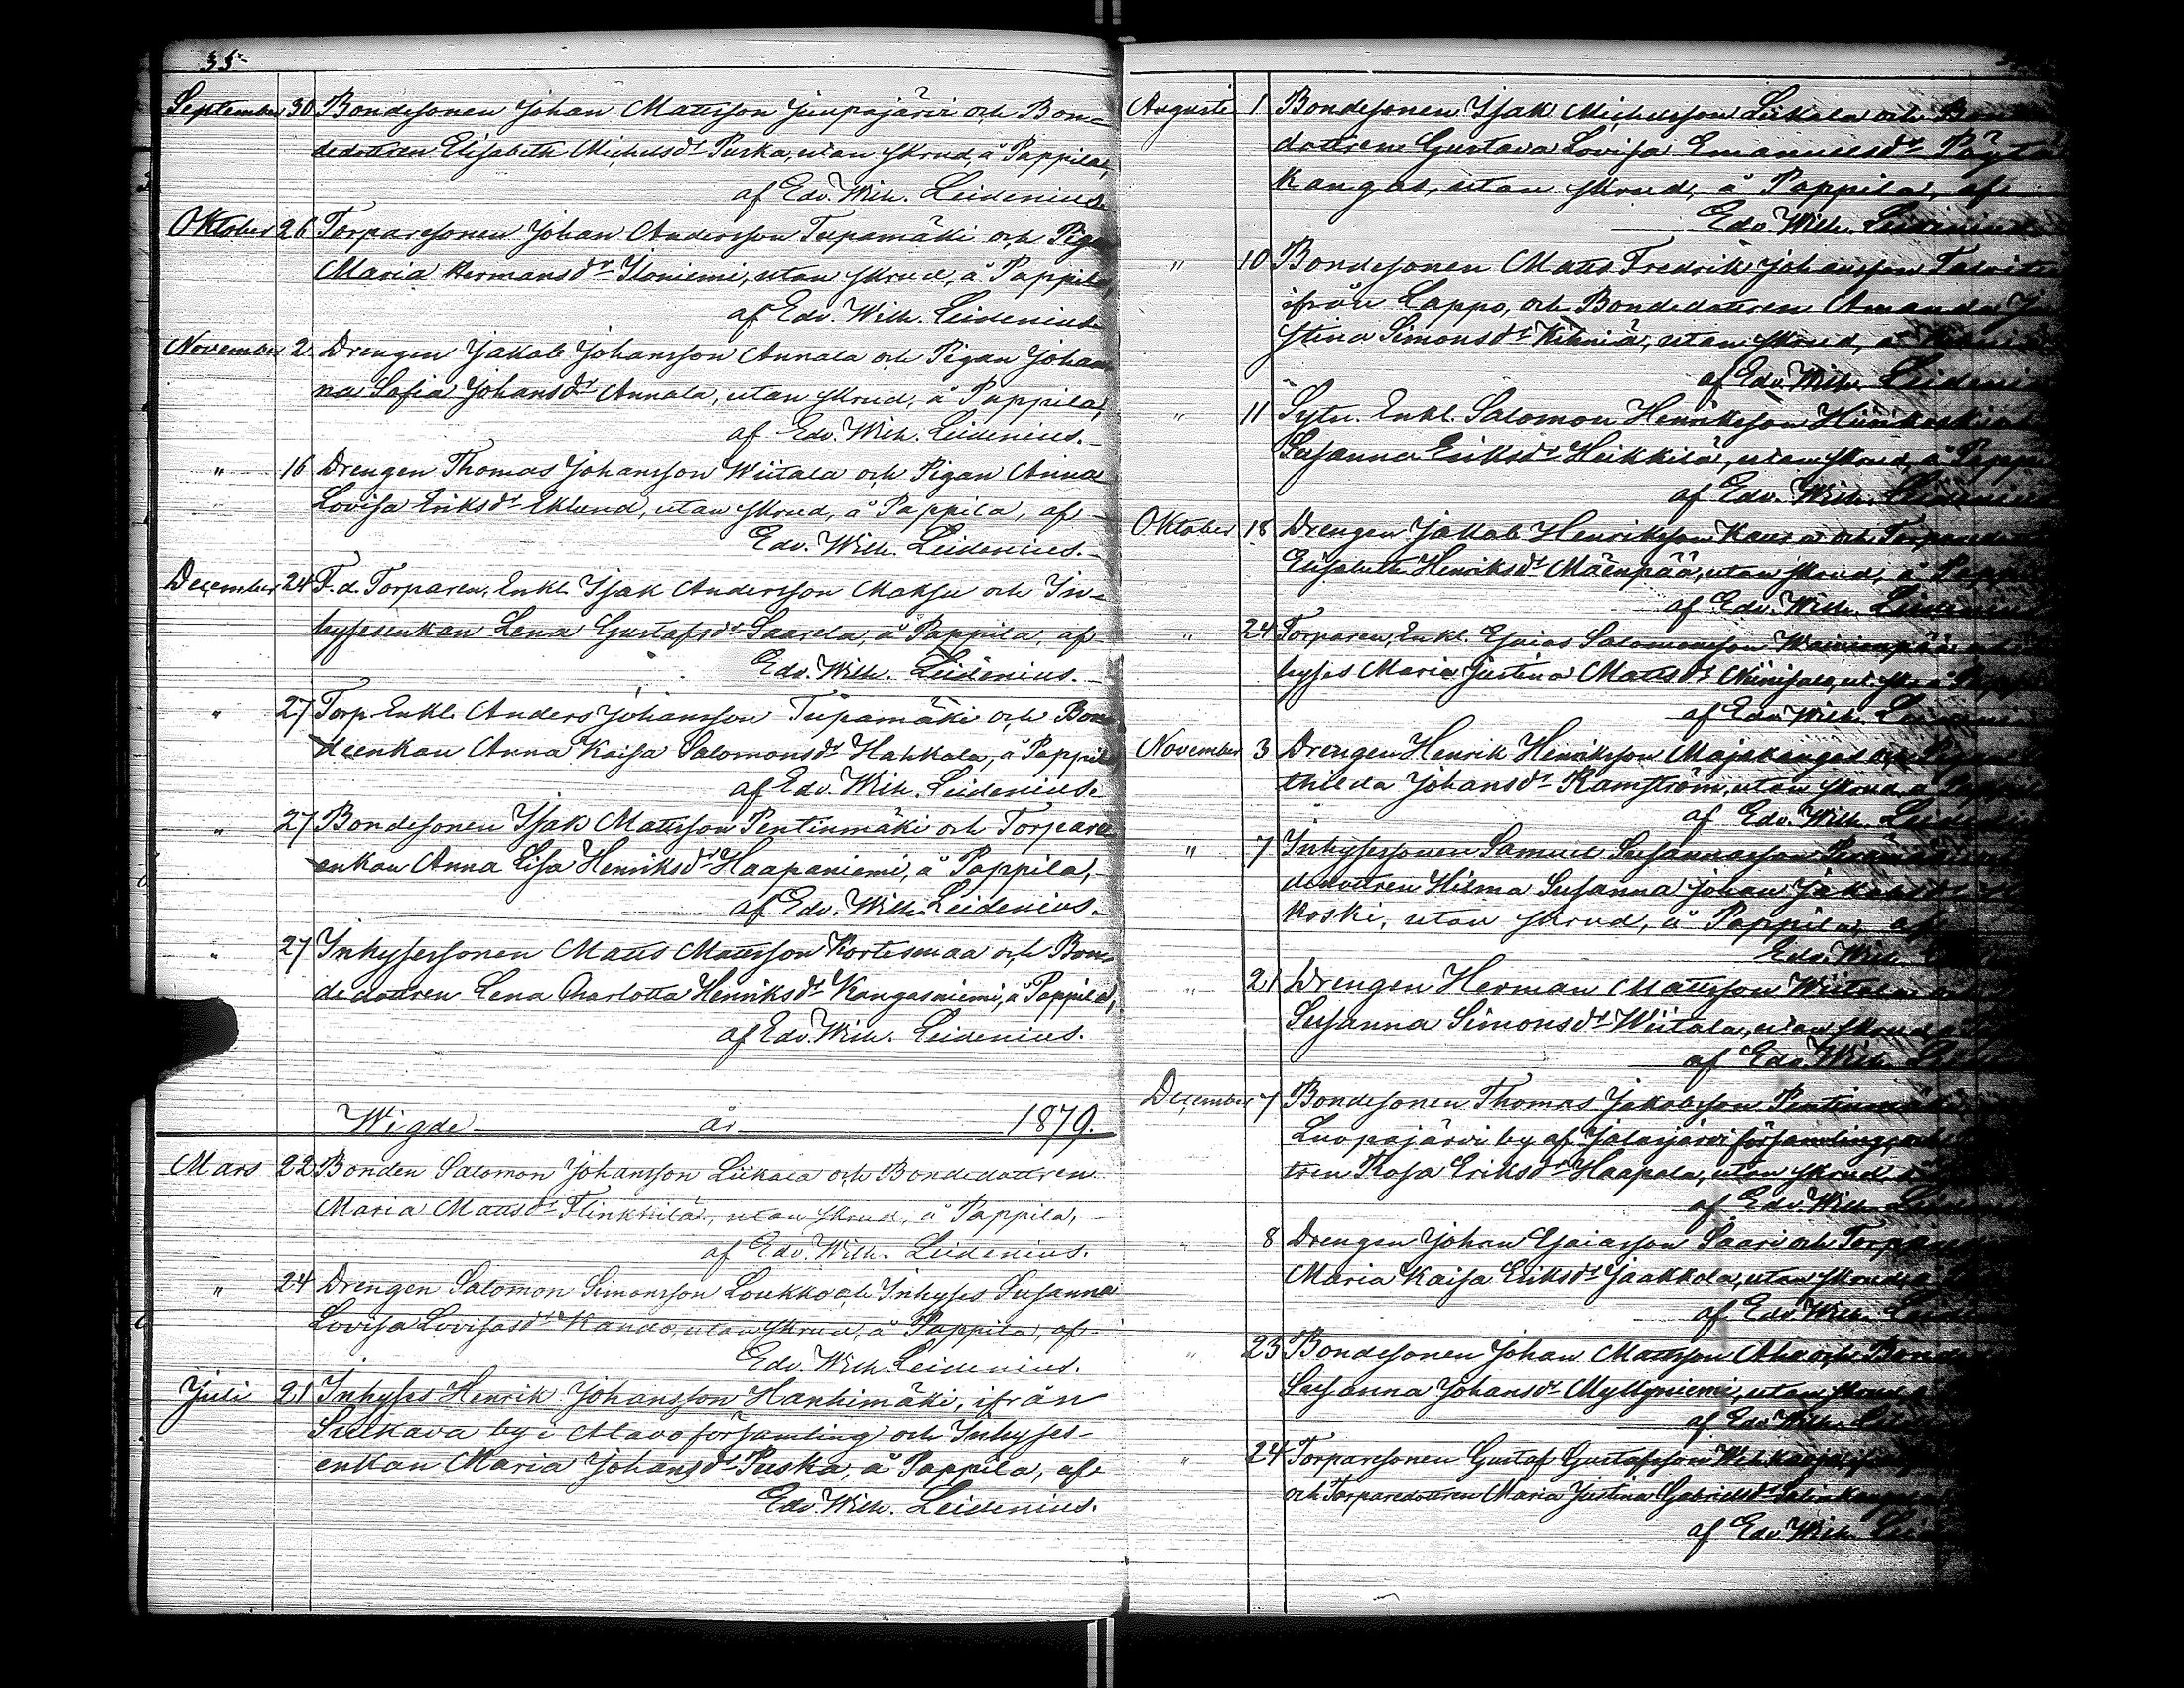 35.
September 30 Bondesonen Johan Mattsson Juupajärvi och Bon-
dedottren Elisabeth Michelsdr Puska, utan skrud, å Pappila,
af Edv. Wilh. Leidenius.
Oktober 26 Torparesonen Johan Andersson Tupamäki och Pigan
Maria Hermansdr Iloniemi, utan skrud, å Pappila,
af Edv. Wilh. Leidenius.
November 2 Drengen Jakob Johansson Annala och Pigan Johan
na Sofia Johansdr Annala, utan skrud, å Pappila,
af Edv. Wilh. Leidenius.
" 16 Drengen Thomas Johansson Wiitala och Pigan Anna
Lovisa Eriksdr Eklund, utan skrud, å Pappila, af
Edv. Wilh. Leidenius.
December 24 F.d. Torparen, Enkl. Isak Andersson Maksu och In-
hysesenkan Lena Gustafsdr Saarela, å Pappila, af
Edv. Wilh. Leidenius.
" 27 Torp. Enkl. Anders Johansson Tupamäki och Bon-
deenkan Anna Kaisa Salomonsdr Hakkola, å Pappila
af Edv. Wilh. Leidenius.
" 27 Bondesonen Isak Mattsson Pentinmäki och Torpare
enkan Anna Lisa Henriksdr Haapaniemi, å Pappila,
af Edv. Wilh. Leidenius.
" 27 Inhysessonen Matts Mattsson Kortesmaa och Bon-
dedottren Lena Charlotta Henriksdr Kangasniemi, å Pappila,
af Edv. Wilh. Leidenius.
Wigde år 1879.
Mars 22 Bonden Salomon Johansson Liikala och Bondedottren
Maria Mattsdr Flinkkilä, utan skrud, å Pappila,
af Edv. Wilh. Leidenius.
" 24 Drengen Salomon Simonsson Loukko och Inhyses Susanna
Lovisa Lovisasdr Kando, utan skrud, å Pappila, af
Edv. Wilh. Leidenius.
Juli 21 Inhyses Henrik Johansson Hanhimäki, ifrån
Sulkava by i Alavo församling och Inhyses-
enkan Maria Johansdr Puska, å Pappila, af
Edv. Wilh. Leidenius.
Augusti 1 Bondesonen Isak Michelsson Liikala och
dottren Gustava Lovisa Emanuelsdr
kangas, utan skrud, å Pappila, af
Edv. Wilh. Leidenius
" 10 Bondesonen Matts Fredrik Johansson
ifrån Lappo, och Bondedottren Amanda
stina Simonsdr Kihniä, utan skrud, å
af Edv. Wilh.
" 11 Sytn. Enkl. Salomon Henriksson
Susanna Eriksdr Heikkilä, utan skrud, å
af Edv. Wilh.
Oktober 18 Drengen Jakob Henriksson och
Elisabeth Henriksdr Mäenpää, utan skrud, å
af Edv. Wilh.
" 24 Torparen, Enkl. Esaias Salomonsson Wainionpää
hyses Maria Justina Mattsdr
af Edv. Wilh.
November 3 Drengen Henrik Henriksson Majakangas och
thilda Johansdr Ramström, utan skrud, å
af Edv. Wilh.
" 7 Inhysessonen Samuel Susannasson
dedottren Hilma Susanna Johan Jakobs
koski, utan skrud, å Pappila, af
Edv. Wilh.
" 21 Drengen Herman Mattsson Wiitala
Susanna Simonsdr Wiitala, utan skrud, å
af Edv. Wilh.
December 7 Bondesonen Thomas Jakobsson Pentinmäki,
Luopajärvi by af Jalasjärvi församling, och
tren Rosa Eriksdr Haapala, utan skrud, å
af Edv. Wilh.
" 8 Drengen Johan Esaiasson Saari och
Maria Kaisa Eriksdr Jaakkola, utan skrud, å
af Edv. Wilh.
" 23 Bondesonen Johan Mattsson Aho och
Susanna Johansdr Myllyniemi, utan skrud,
af Edv. Wilh.
" 24 Torparesonen Gustaf Gustafsson
och Torparedottren Maria Justina Gabrielsdr
af Edv. Wilh.